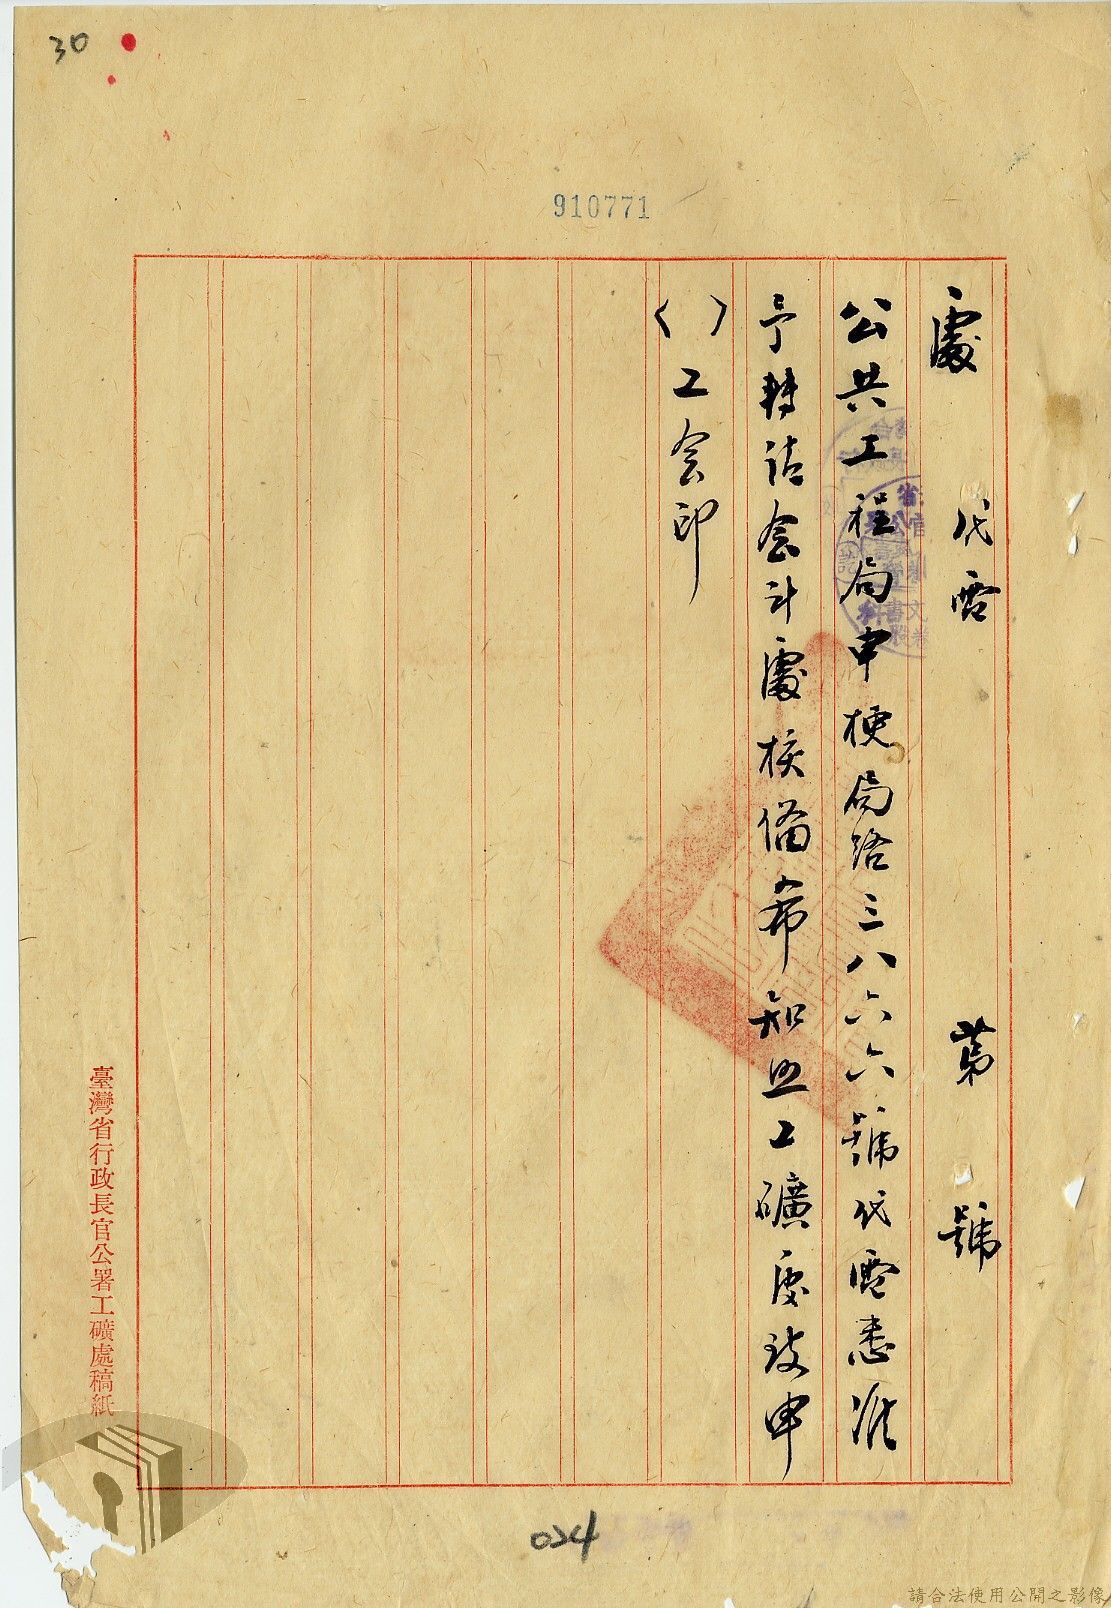 30
910771
處 代電 第 號
公共工程局申梗局路三八六六號代電悉准
予轉請會計處核備希知照工礦處致申
( )工会印
臺灣省行政長官公署工礦處稿紙
024
請合法使用公開之影像